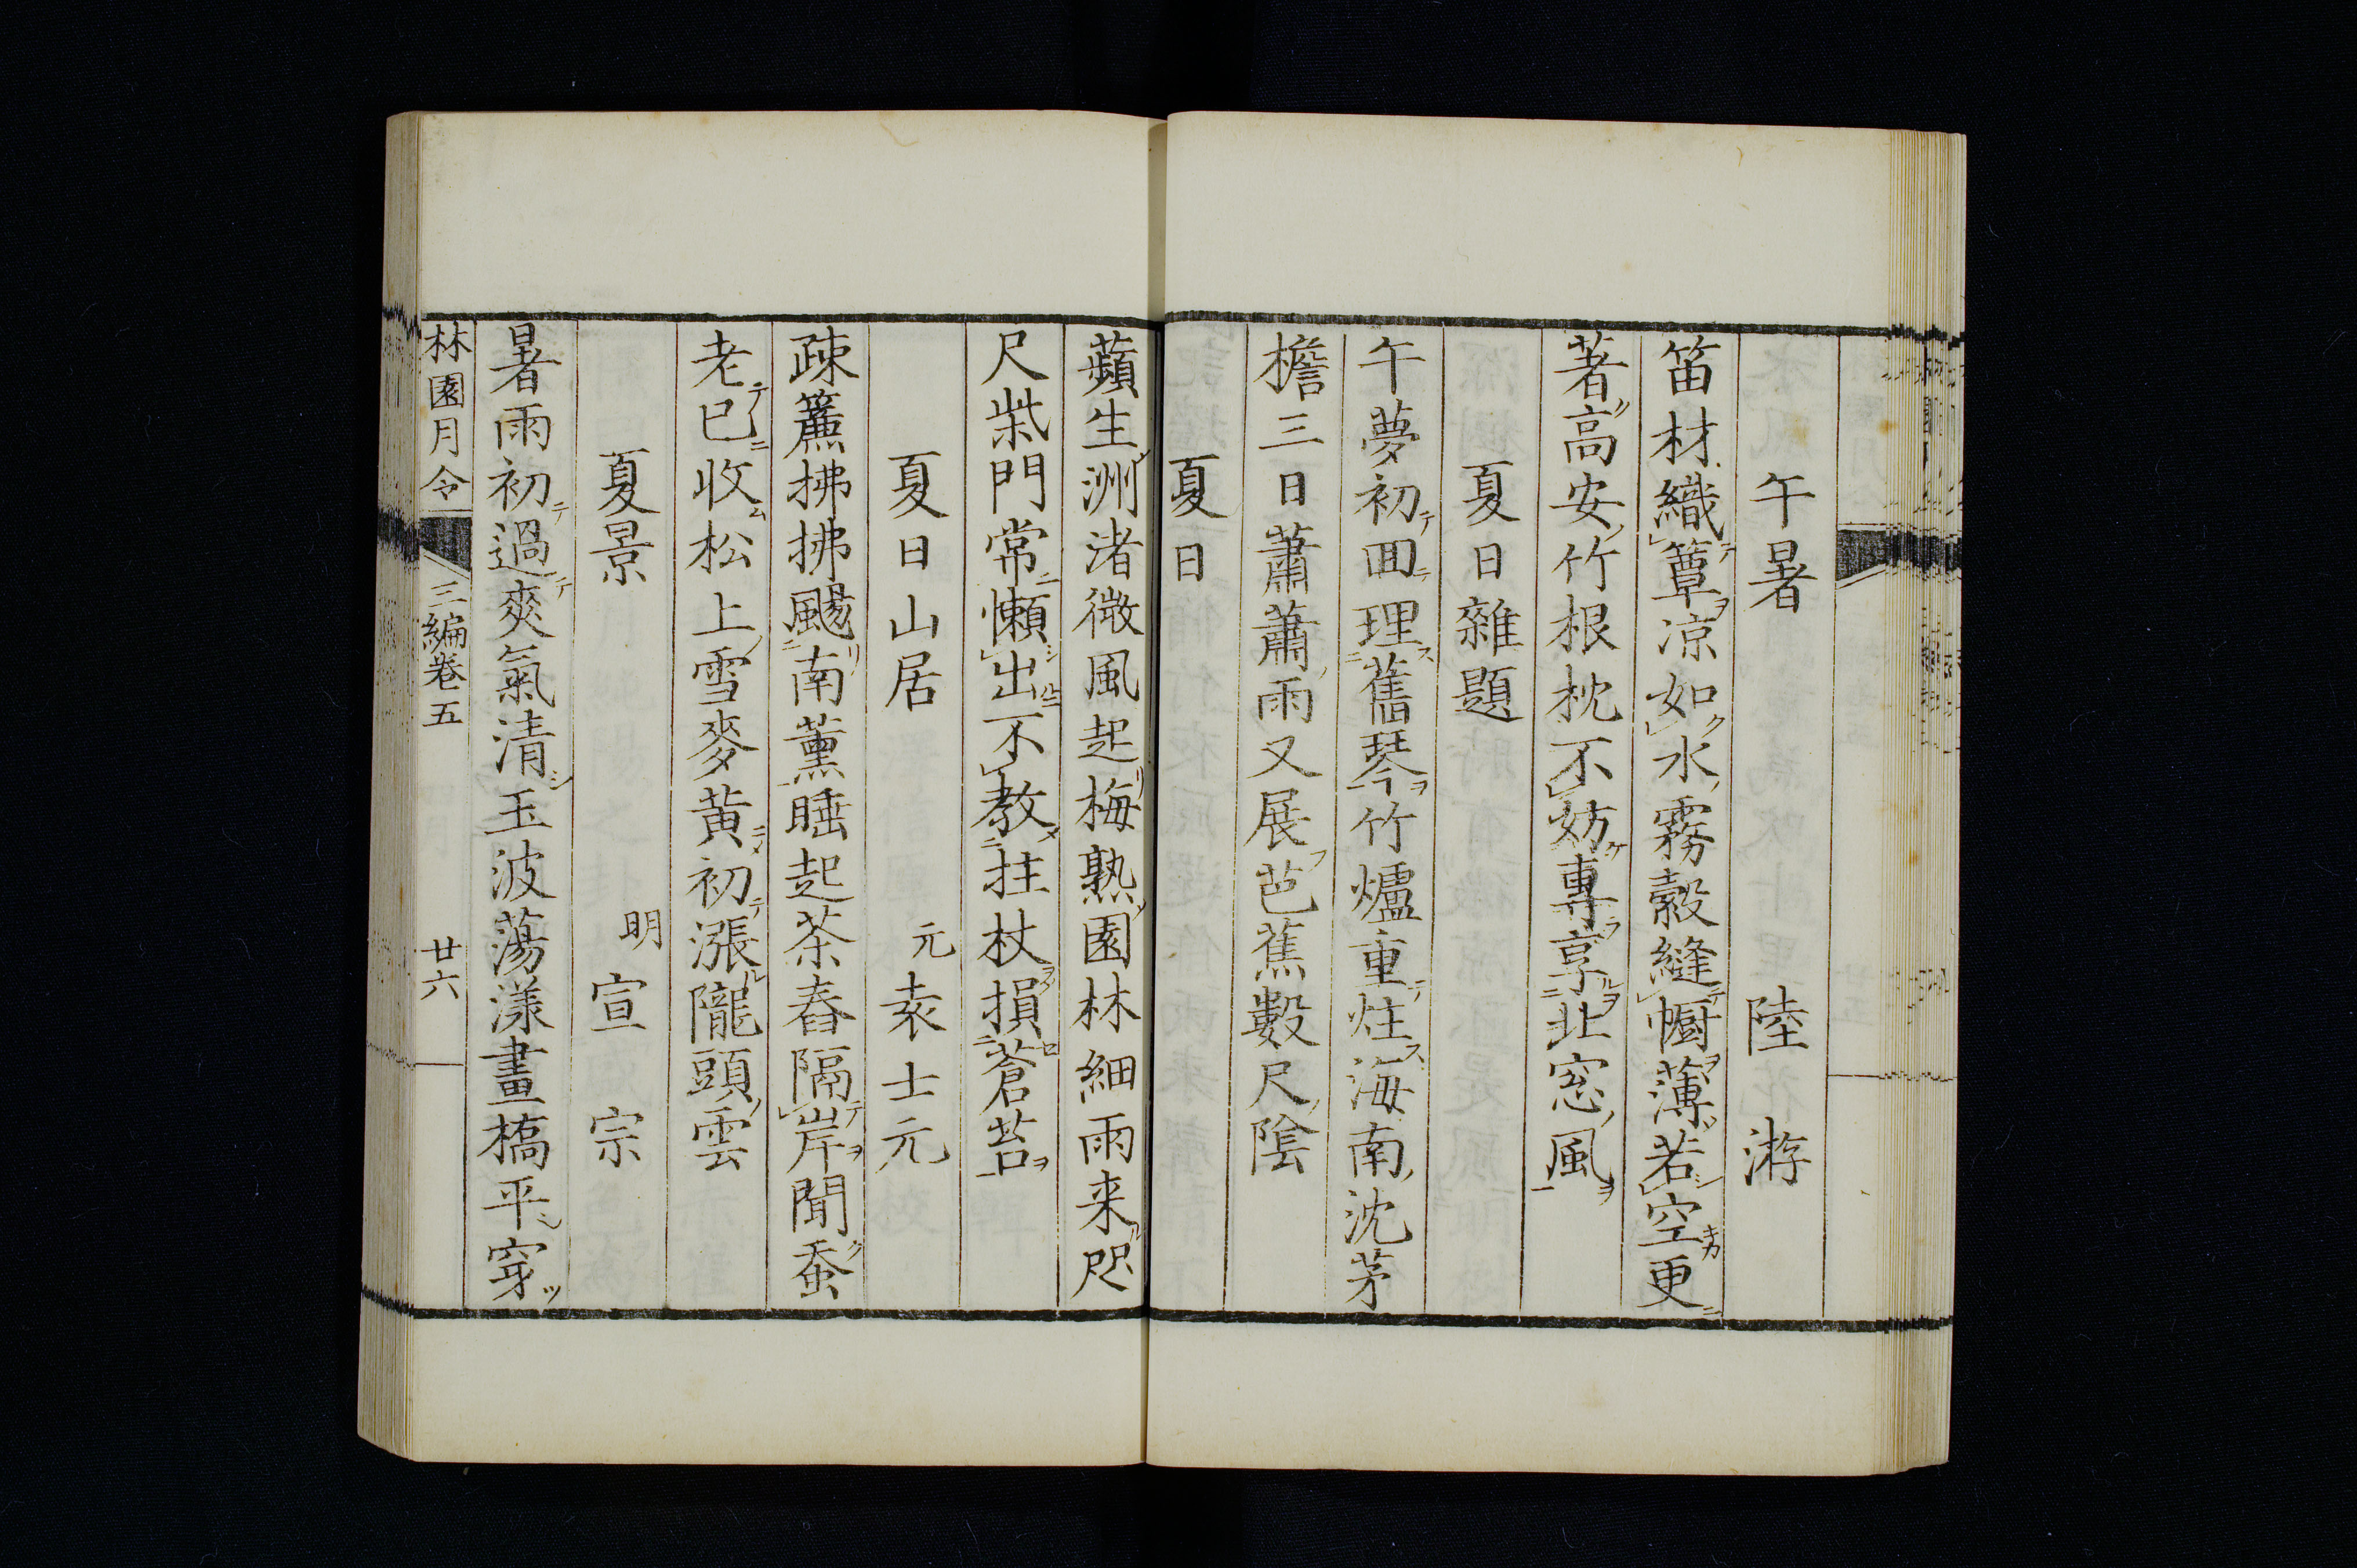 午暑　陸游
笛材織簟凉如水霧縠縫幮薄若空更
著高安竹根枕不妨專享北窓風
夏日雜題
午夢初回理舊琴竹爐重炷海南沈茅
檐三日蕭蕭雨又展芭蕉數尺陰
夏日
蘋生洲渚微風起梅熟園林細雨来咫
尺柴門常懶出不教拄杖損蒼苔
夏日山居　元　袁士元
疎簾拂拂颺南薫睡起茶舂隔岸聞蚕
老已收松上雪麥黄初漲隴頭雲
夏景　明　宣宗
暑雨初過爽氣清玉波蕩漾畫橋平穿
林園月令　三編卷五　廿六